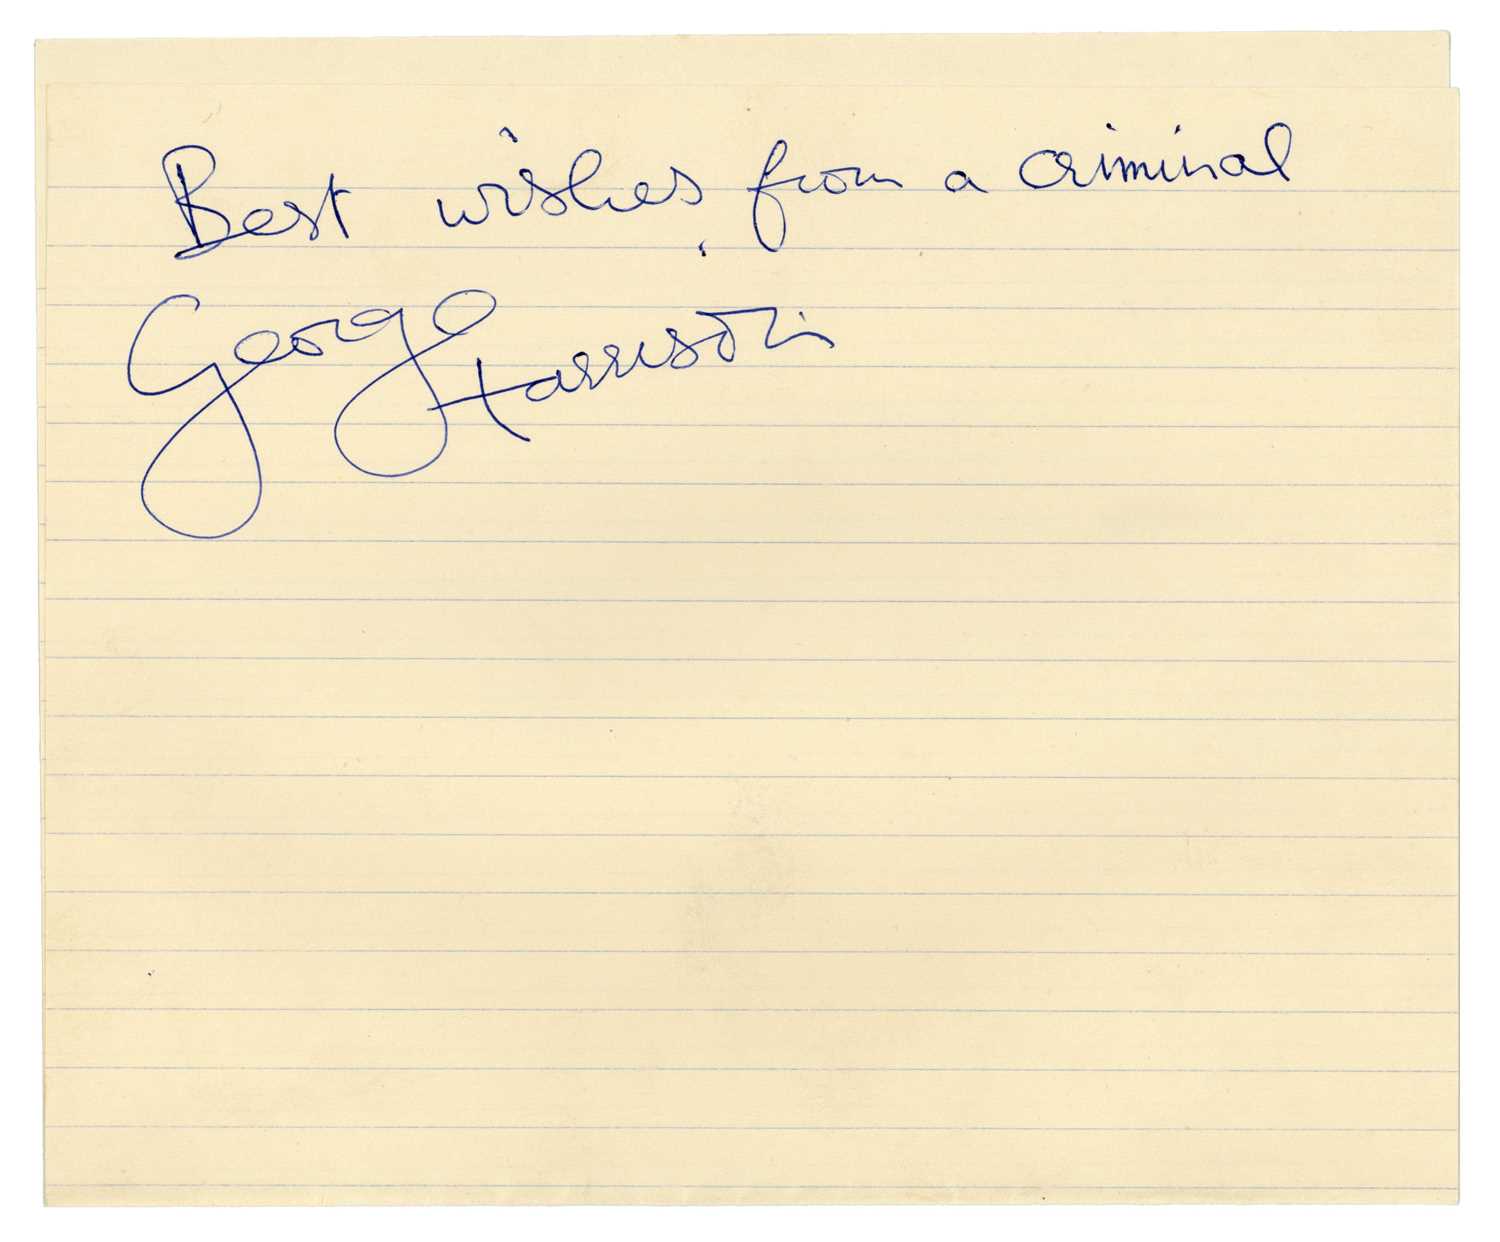 Best wishes from a criminal
George Harrison